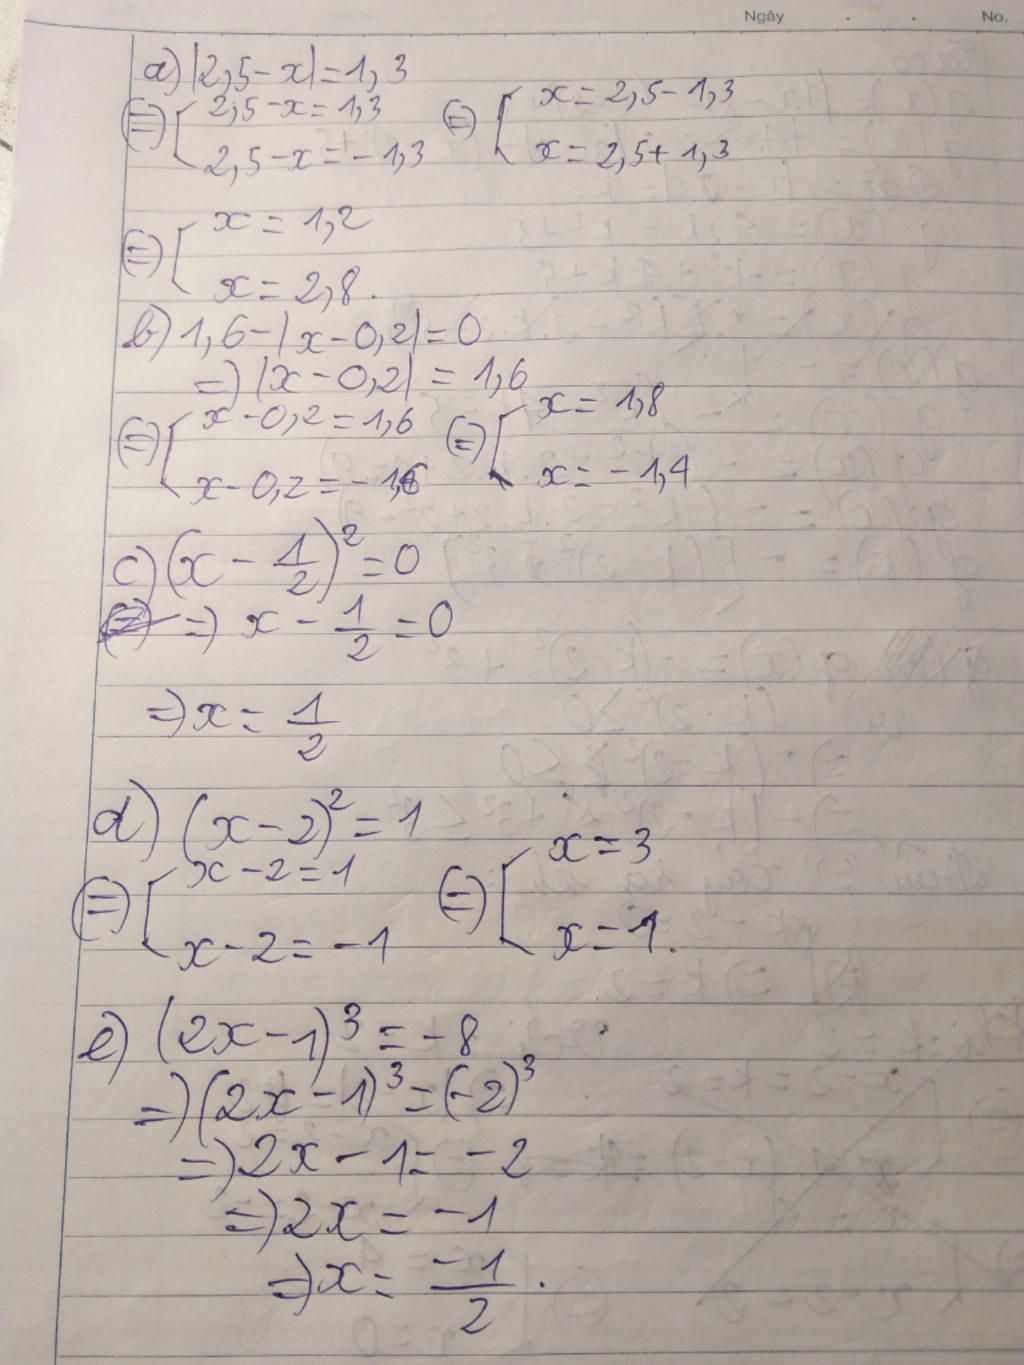 Ngày . . No.
a) |2,5 - x| = 1,3
(=) [ 2,5 - x = 1,3 (=) [ x = 2,5 - 1,3
2,5 - x = - 1,3 x = 2,5 + 1,3
(=) [ x = 1,2
x = 2,8.
b) 1,6 - |x - 0,2| = 0
=) |x - 0,2| = 1,6
(=) [ x - 0,2 = 1,6 (=) [ x = 1,8
x - 0,2 = - 1,6 x = - 1,4
c) (x - 1/2)² = 0
=) x - 1/2 = 0
=) x = 1/2
d) (x - 2)² = 1
(=) [ x - 2 = 1 (=) [ x = 3
x - 2 = - 1 x = 1.
e) (2x - 1)³ = - 8
=) (2x - 1)³ = (-2)³
=) 2x - 1 = - 2
=) 2x = - 1
=) x = -1/2 .